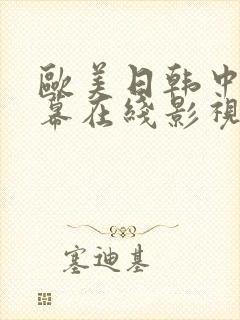 歐美日韩中
幕在綫影視
塞迪基